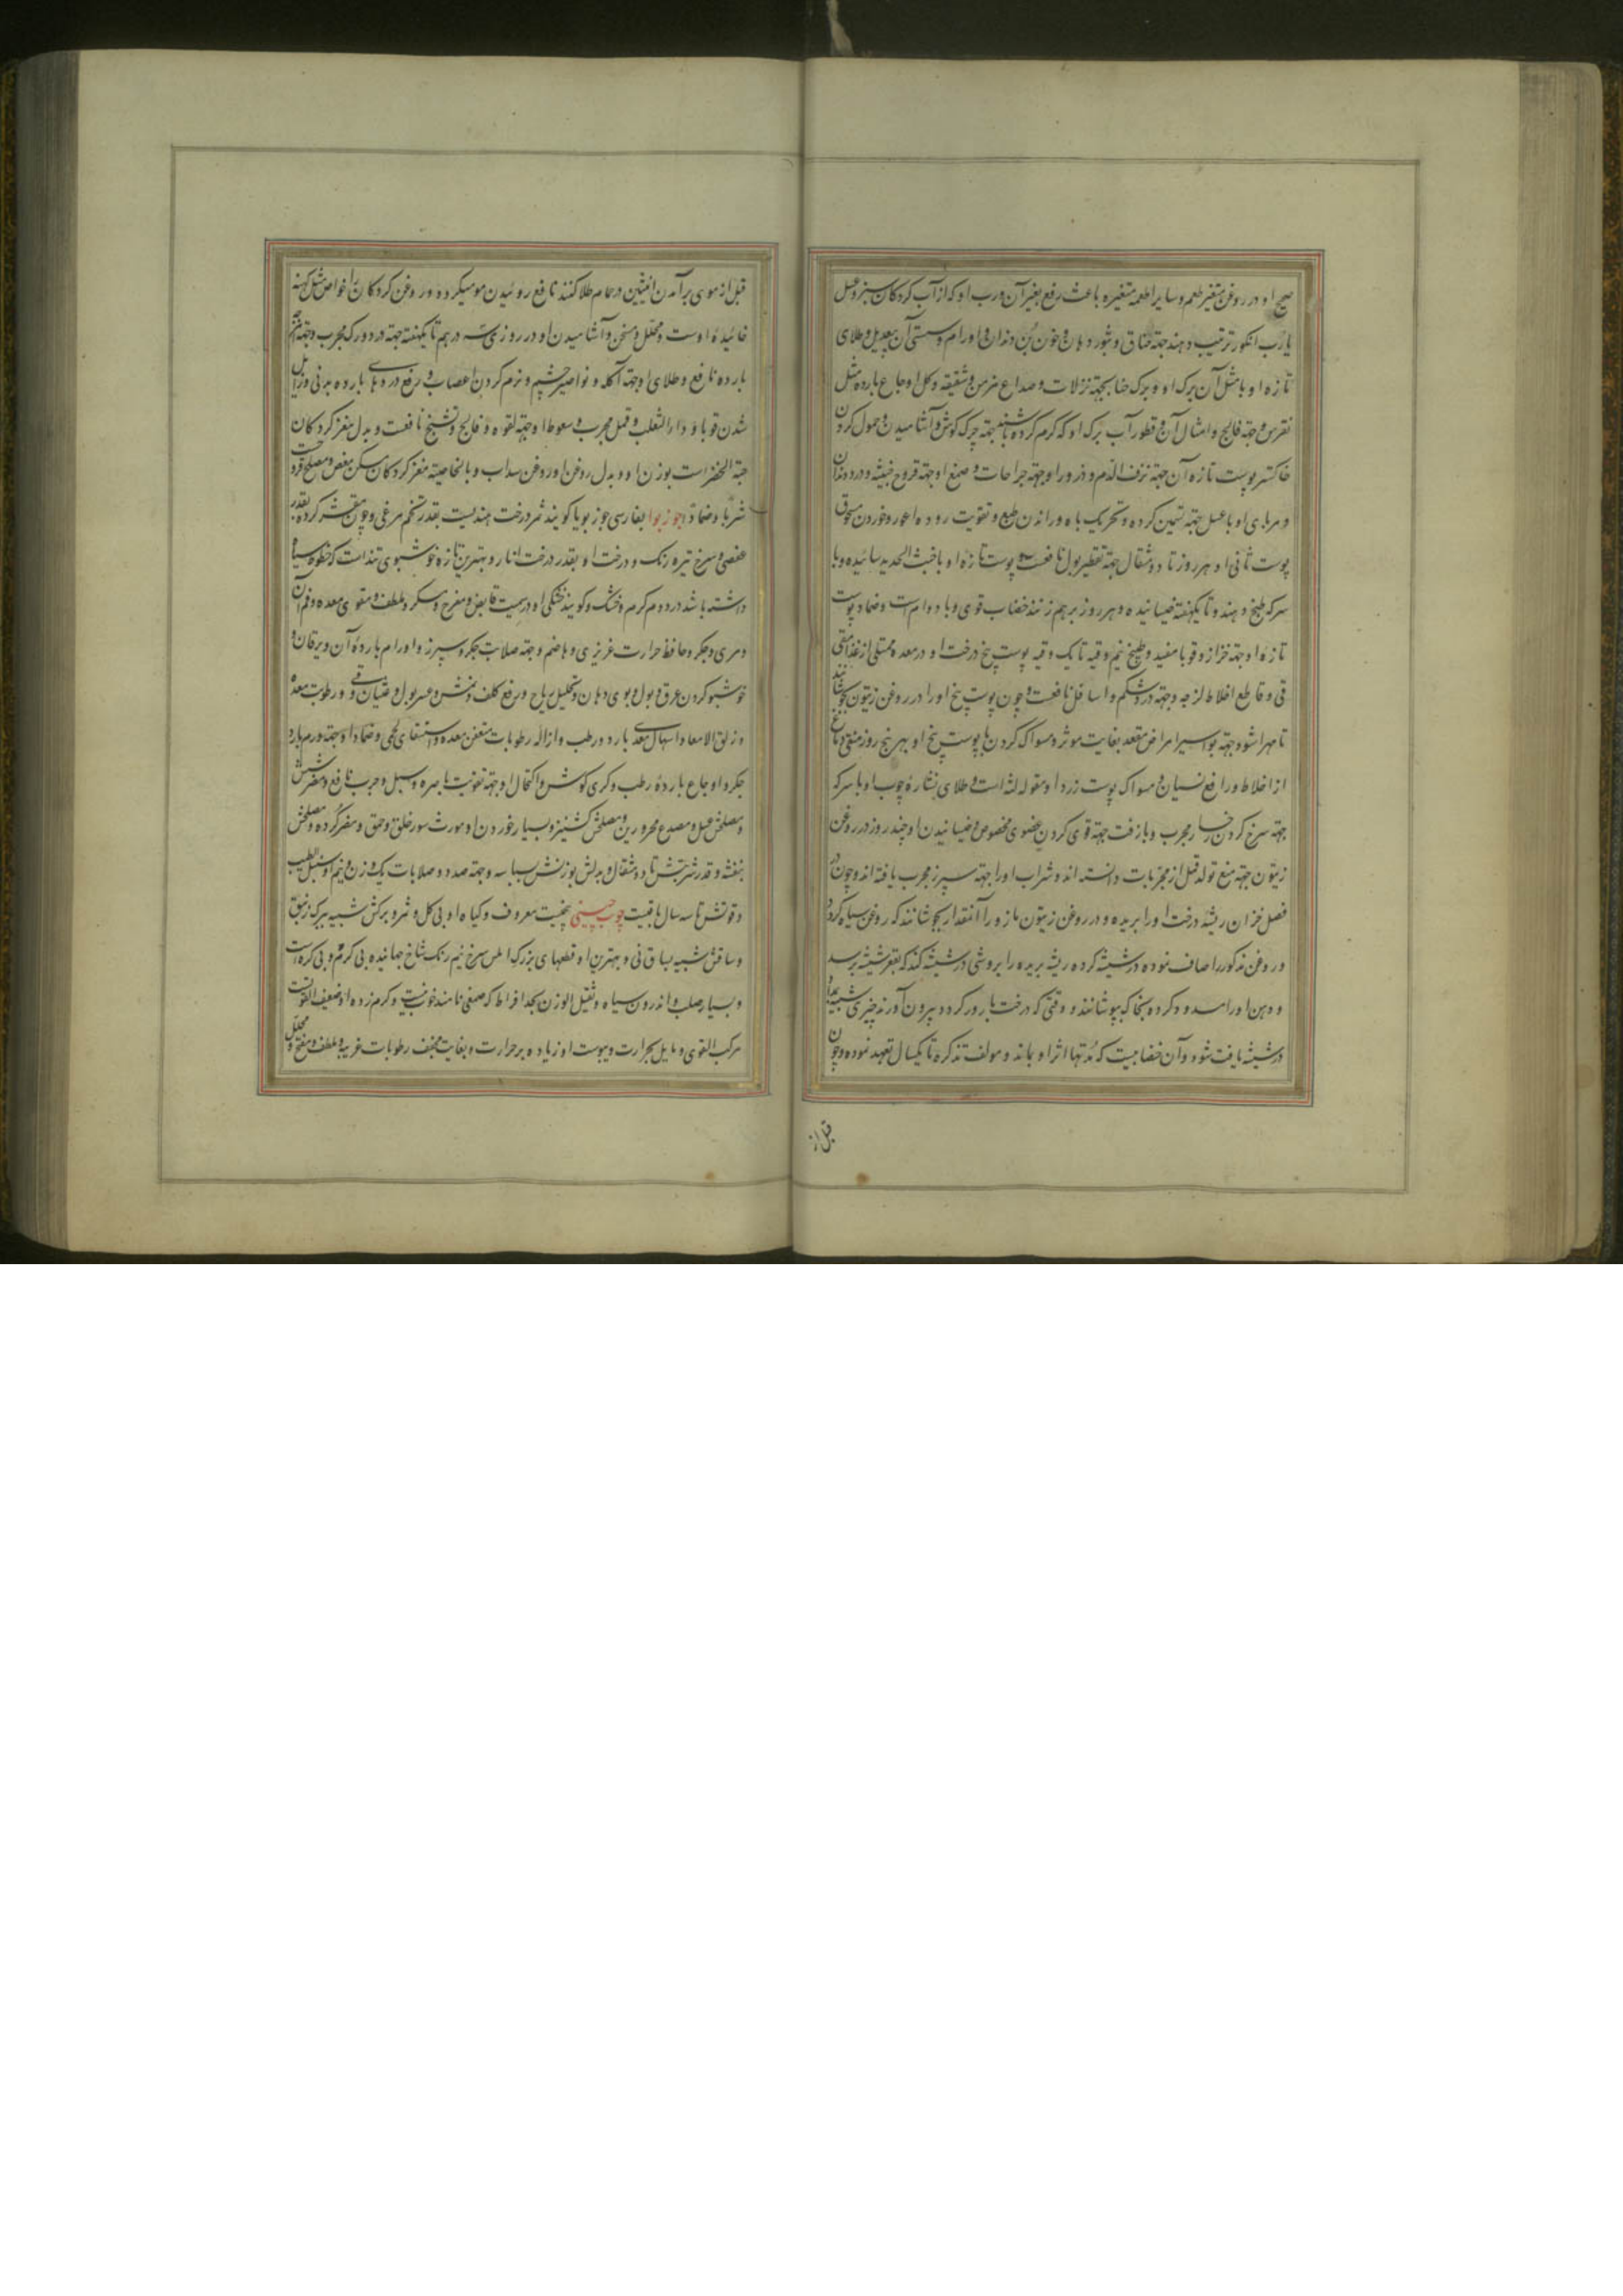 صحیح او در روغن متغیر طعم و سایر اطعمه متغیره باعث رفع تغیر آن و رب او که از آب کردکان سبز و عسل
یا رب انکور ترتیب دهند جهة خناق و بثور دهان و خون بن دندان و اورام و سستی آن بیعدیل و طلای
تازه او با مثل آن برک او و برک حنا بجهة نزلات و صداع مزمن و شقیقه و کل اوجاع بارده مثل
نقرس و جهة فالج و امثال آن و قطور آب برک او که کرم کرده باشند جهة چرک کوش و آشامیدن و حمول کردن
خاکستر پوست تازه آن جهة نزف الدم و ذرور او جهة جراحات و صمغ او جهة قروح خبیثه و درد دندان
و مربای او با عسل جهة تسمین کرده و تحریک باه و راندن طبع و تقویت روده اعور و خوردن مسحوق
پوست ثانی او هر روز تا دو مثقال جهة تقطیر بول نافعست و پوست تازه او با خبث الحدید سائیده و با
سرکه طبخ دهند و تا یکهفته خیسانیده و هر روز برهم زنند خضاب قوی و با دوام است و ضماد پوست
تازه او جهة خزاز و قوبا مفید و طبیخ نیم وقیه تا یک وقیه پوست بیخ درخت او در معده ممتلی از غذا مقی
قی و قاطع اخلاط لزجه و جهة درد شکم و اسافل نافعست و چون پوست بیخ او را در روغن زیتون بجوشانند
تا مهرا شود جهة بواسیر امراض مقعد بغایت موثر و مسواک کردن با پوست بیخ او بهر پنج روز منقی دماغ
از اخلاط و رافع نسیان و مسواک پوست زرد او مقوی لثه است و طلای نشاره چوب او با سرکه
جهة سرخ کردن رخسار مجرب و با زفت جهة قوی کردن عضوی مخصوص و خیسانیدن او چند روز در روغن
زیتون جهة منع تولد قمل از مجربات دانسته اند و شراب او را جهة سپرز مجرب یافته اند و چون در
فصل خزان ریشه درخت او را بریده و در روغن زیتون مازو را آنقدار بجوشانند که روغن سیاه کردد
و روغن مذکور را صاف نموده در شیشه کرده ریشه بریده را بروشی در شیشه کنند که بقعر شیشه برسد
و دهن او را مسدود کرده بخاک بپوشانند و وقتی که درخت بارور کردد بیرون آورند چیزی شبیه
در شیشه یافت شود و آن خضابیست که مدتها اثر او بماند و مولف تذکره تا یکسال تعهد نموده و چون
قبل از
قبل از موی برآمدن انثیین در حمام طلا کنند نافع روئیدن مو میکردد و روغن کردکان خواص مثل کهنه
خائیده اوست و محلل و مسخن و آشامیدن او در روزی سه درهم تا یکهفته جهة درد ورک مجرب و جهة
بارده نافع و طلای او جهة آکله و نواصیر چشم و نرم کردن اعصاب و رفع دردهای بارده بدنی و زایل
شدن قوبا و داء الثعلب و قمل مجرب و سعوط او جهة لقوه و فالج و تشنج نافعست و بدل مغز کردکان
حبة الخضراست بوزن او و بدل روغن او روغن سداب و بالخاصیة مغز کردکان مسکن مغص و مصلح
شربا و ضمادا جوز بوا بفارسی جوز بویا کویند ثمر درخت هندیست بقدر تخم مرغی و چون مقشر کردد بقدر
عفصی و سرخ تیره رنک و درخت او بقدر درخت انار و بهترین تازه خوشبوی تند است که خطوط سیاه
داشته باشد در دوم کرم و خشک و کویند خشکی او در سیم است قابض و مفرح و مسکر و ملطف و مقوی معده و فم آن
و مری و جکر و حافظ حرارت غریزی و هاضم و جهة صلابت جکر و سپرز و اورام بارده آن و یرقان و
خوشبو کردن عرق و بول و بوی دهان و تحلیل ریاح و رفع کلف و نمش و عسر بول و غثیان و قی و رطوبت معده
و زلق الامعا و اسهال معدی بارد و رطب و ازاله رطوبات متعفن معده و استسقای لحمی و ضماد او جهة ورم بارد
جکر و اوجاع بارده رطب و کری کوش و اکتحال او جهة تقویت باصره و سبل و جرب نافع و مضر شش
و مصلحش عسل و مصدع محرورین و مصلحش کشنیز و بسیار خوردن او مورث سوء خلق و حمق و مضر کرده و مصلحش
بنفشه و قدر شربتش تا دو مثقال و بدلش بوزنش بسباسه و جهة صدد و صلابات یک وزن و نیم او سنبل الطیب
و قوتش تا سه سال باقیست چوب چینی بیخیست معروف و کیاه او بی کل و ثمر و برکش شبیه ببرک زنبق
و ساقش شبیه بساق نی و بهترین او قطعهای بزرک املس سرخ نیم رنک شاخ جهانیده بی کرم و بی کره است
و بسیار صلب و اندرون سیاه و ثقیل الوزن بحد افراط که صمغی نامند خوب نیست و کرم زده او ضعیف القوت
مرکب القوی و مایل بحرارت و یبوست او زیاده بر حرارت و بغایت مجفف رطوبات غریبه و ملطف و مفتح و محلل